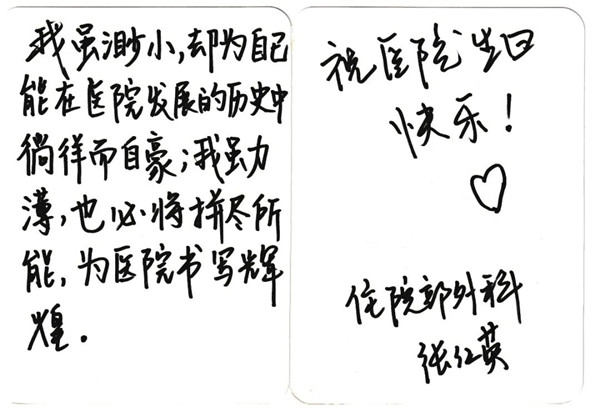 我虽渺小,却为自己
能在医院发展的历史中
徜徉而自豪;我虽力
薄,也必将拼尽所
能,为医院书写辉
煌.
祝医院生日
快乐!
住院部外科
张红英